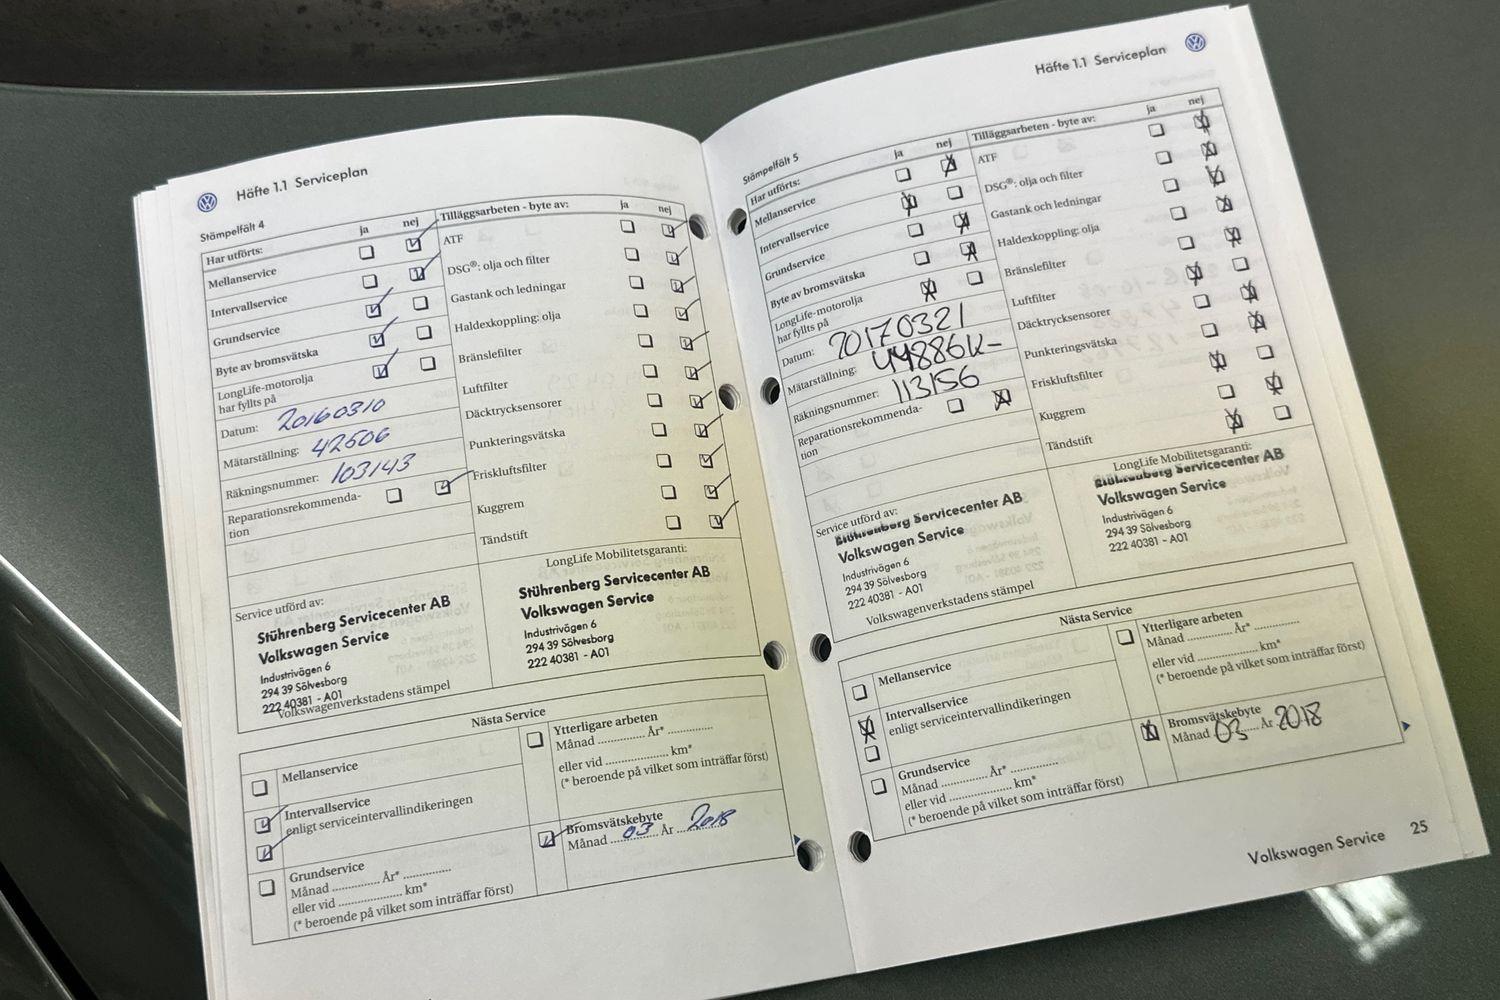 Häfte 1.1 Serviceplan
Stämpelfält 4
Har utförts: ja nej
Mellanservice
Intervallservice
Grundservice
Byte av bromsvätska
LongLife-motorolja
har fyllts på
Datum: 20160310
Mätarställning: 42606
Räkningsnummer: 103143
Reparationsrekommenda-
tion
Tilläggsarbeten - byte av: ja nej
ATF
DSG®: olja och filter
Gastank och ledningar
Haldexkoppling: olja
Bränslefilter
Luftfilter
Däcktrycksensorer
Punkteringsvätska
Friskluftsfilter
Kuggrem
Tändstift
Service utförd av:
Stührenberg Servicecenter AB
Volkswagen Service
Industrivägen 6
294 39 Sölvesborg
222 40381 - A01
Volkswagenverkstadens stämpel
LongLife Mobilitetsgaranti:
Stührenberg Servicecenter AB
Volkswagen Service
Industrivägen 6
294 39 Sölvesborg
222 40381 - A01
Nästa Service
Mellanservice
Intervallservice
enligt serviceintervallindikeringen
Grundservice
Månad ............... År* ...............
eller vid .................... km*
(* beroende på vilket som inträffar först)
Ytterligare arbeten
Månad ............... År* ...............
eller vid .................... km*
(* beroende på vilket som inträffar först)
Bromsvätskebyte
Månad 03 År 2018
Häfte 1.1 Serviceplan
Stämpelfält 5
Har utförts: ja nej
Mellanservice
Intervallservice
Grundservice
Byte av bromsvätska
LongLife-motorolja
har fyllts på
Datum: 20170321
Mätarställning: 44886K-
Räkningsnummer: 113156
Reparationsrekommenda-
tion
Tilläggsarbeten - byte av: ja nej
ATF
DSG®: olja och filter
Gastank och ledningar
Haldexkoppling: olja
Bränslefilter
Luftfilter
Däcktrycksensorer
Punkteringsvätska
Friskluftsfilter
Kuggrem
Tändstift
Service utförd av:
Stührenberg Servicecenter AB
Volkswagen Service
Industrivägen 6
294 39 Sölvesborg
222 40381 - A01
Volkswagenverkstadens stämpel
LongLife Mobilitetsgaranti:
Stührenberg Servicecenter AB
Volkswagen Service
Industrivägen 6
294 39 Sölvesborg
222 40381 - A01
Nästa Service
Mellanservice
Intervallservice
enligt serviceintervallindikeringen
Grundservice
Månad ............... År* ...............
eller vid .................... km*
(* beroende på vilket som inträffar först)
Ytterligare arbeten
Månad ............... År* ...............
eller vid .................... km*
(* beroende på vilket som inträffar först)
Bromsvätskebyte
Månad 03 År 2018
Volkswagen Service 25